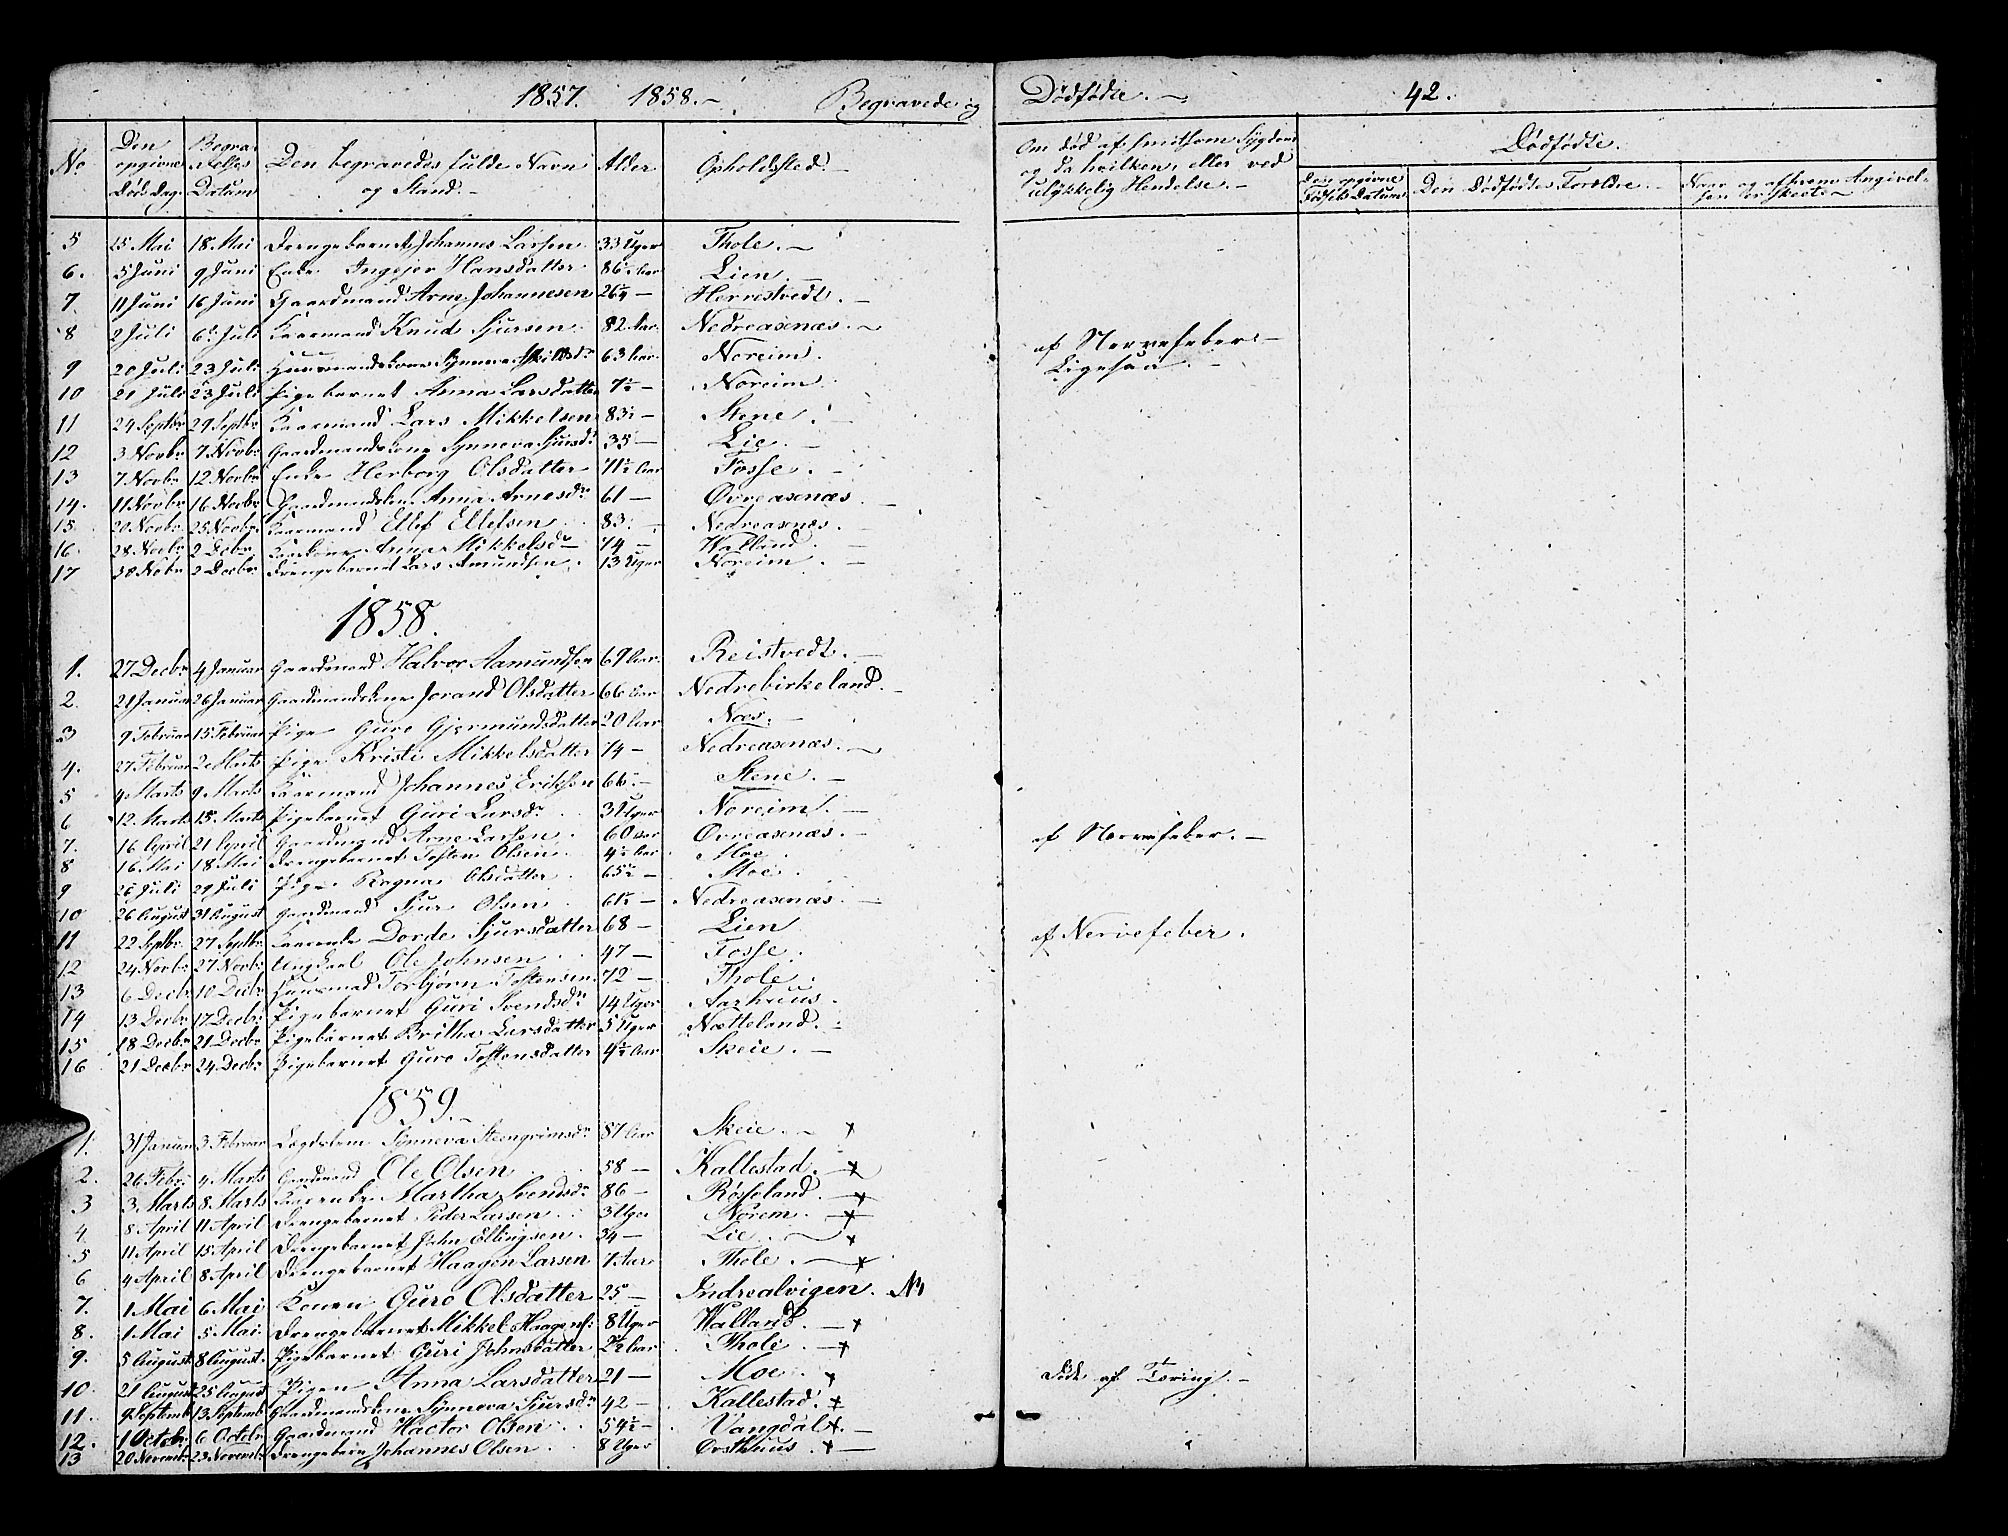 1857. 1858.- Begravede og Dødfødte.- 42.
No Den opgivne Døds Dag. Begravelses Datum Den begravedes fulde Navn og Stand.- Alder Opholdsted.- Om død af smitsom Sygdom og da hvilken, eller ved ulykkelig Hendelse.- Dødfødte.
Den opgivne Fødsels Datum. Den Dødfødtes Forældre.- Naar og af hvem Angivelsen er skeet.-
5 15 Mai 18. Mai Drengebarnet Johannes Larsen 33 Uger Thole.-
6. 5 Juni 9 Juni Enke Ingejer Hansdatter 86 Aar Lien.-
7. 11 Juni 16 Juni Gaardmand Arne Johannesen 26¼- Herrestvedt.-
8 2 Juli 6 Juli Kaarmand Knud Sjursen. 82 Aar. Nedreasenæs.-
9 20 Juli 23 Juli Huusmandskone Synneva 63 Aar. Noreim. af Nervefeber.-
10 21 Juli 23 Juli Pigebarnet Anna Larsdatter 7½- Noreim Ligesaa.-
11 24 Septbr 29 Septbr Kaarmand Lars Mikkelsen 83½- Stene.-
12 3 Novbr 7 Novbr Gaardmandskone Synneva Sjursdr 35- Lie.-
13 7 Novbr 12 Novbr Enke Herborg Olsdatter 71½ Aar Fosse.-
14. 11 Novbr 16 Novbr Gaardmandskone Anna Arnesdr 61- Øvreasenæs
15. 20 Novbr 25 Novbr Kaarmand Ellef Ellefsen 83.- Nedreasenæs.-
16. 28 Novbr 2 Decbr Kaarkone Anna Mikkelsdr 74- Walland.-
17 30 Nobr 2 Decbr Drengebarnet Lars Amundsen. 13 Uger Noreim.-
1858.
1. 27 Decbr 4 Januar Gaardmand Halvor Aamundsen 69 Aar. Reistvedt.-
2. 21 Januar 26 Januar Gaardmandskone Jorand Olsdatter 66 Aar Nedrebirkeland.-
3 9 Februar 15 Februar Pige Guro Gjermundsdatter 20 Aar Næs.-
4. 27 Februar 2 Marts Pige Kristi Mikkelsdatter 74- Nedreasenæs.-
5 4 Marts 9 Marts Kaarmand Johannes Eriksen 66.- Stene.-
6 12. Marts 15. Marts Pigebarnet Guri Larsdr 3 Uger Noreim.-
7. 16 April 21 April Gaardmand Arne Larsen. 60 Aar Øvreasenæs.- af Nervefeber.-
8 16. Mai 18 Mai Drengebarnet Tosten Olsen. 4½ Aar Moe.
9 26 Juli 29 Juli Pige Ragna Olsdatter. 65½- Moe
10 26 August 31 August Gaardmand Sjur Olsen 61½- Nedreasenæs.-
11 22 Septbr. 27 Septbr. Kaarenke Dorde Sjursdatter 68- Lien af Nervefeber.
12 24 Novbr 27 Novbr. Ungkarl Ole Johnsen 47- Fosse.
13 6 Decbr. 10 Decbr Huusmand Torbjørn Tostensen. 72- Thole.
14 13 Decbr. 17 Decbr. Pigebarnet Guri Svendsdr 14 Uger Aarhuus.
15 18 Decbr 21 Decbr. Pigebarnet Britha Larsdatter 5 Uger Nætteland.-
16 21 Decbr 24 Decbr. Pigebarnet Guro Tostensdatter 4½ Aar Skeie.-
1859.-
1. 31 Januar 3 Februar Lægdslem Synneva Steengrimsdr 87 Aar Skeie.-
2. 26 Febr. 4 Marts Gaardmand Ole Olsen 58- Kallestad.-
3 3 Marts 8 Marts Kaarenke Martha Svendsdr 86- Røseland.-
4. 8 April 11 April Drengebarnet Peder Larsen. 3 Uger Norem.-
5 11 April 15 April Drengebarnet John Ellingsen. 34- Lie.-
6 4 April 8 April Drengebarnet Haagen Larsen 7 Aar Thole.-
7. 1 Mai 6 Mai Konen Guro Olsdatter 25- Indreaalvigen.
8. 1 Mai 5 Mai. Drengebarnet Mikkel Haagens. 8 Uger Walland.-
9. 5 August 8 August. Pigebarnet Guri Johnsdatter 2½ Aar Thole.-
10. 21 August 25 August Pigen Anna Larsdatter 21- Moe. Døde af Tæring.-
11. 9 Septemb. 13 Septemb. Gaardmandskone Synneva Sjursdr 42- Kallestad.
12. 1 Octobr 6 Octobr Gaardmand Hactor Olsen 54½- Vangdal.-
13 20 Novembr 23 Novembr Drengebarn Johannes Olsen. 8 Uger Østhuus.-